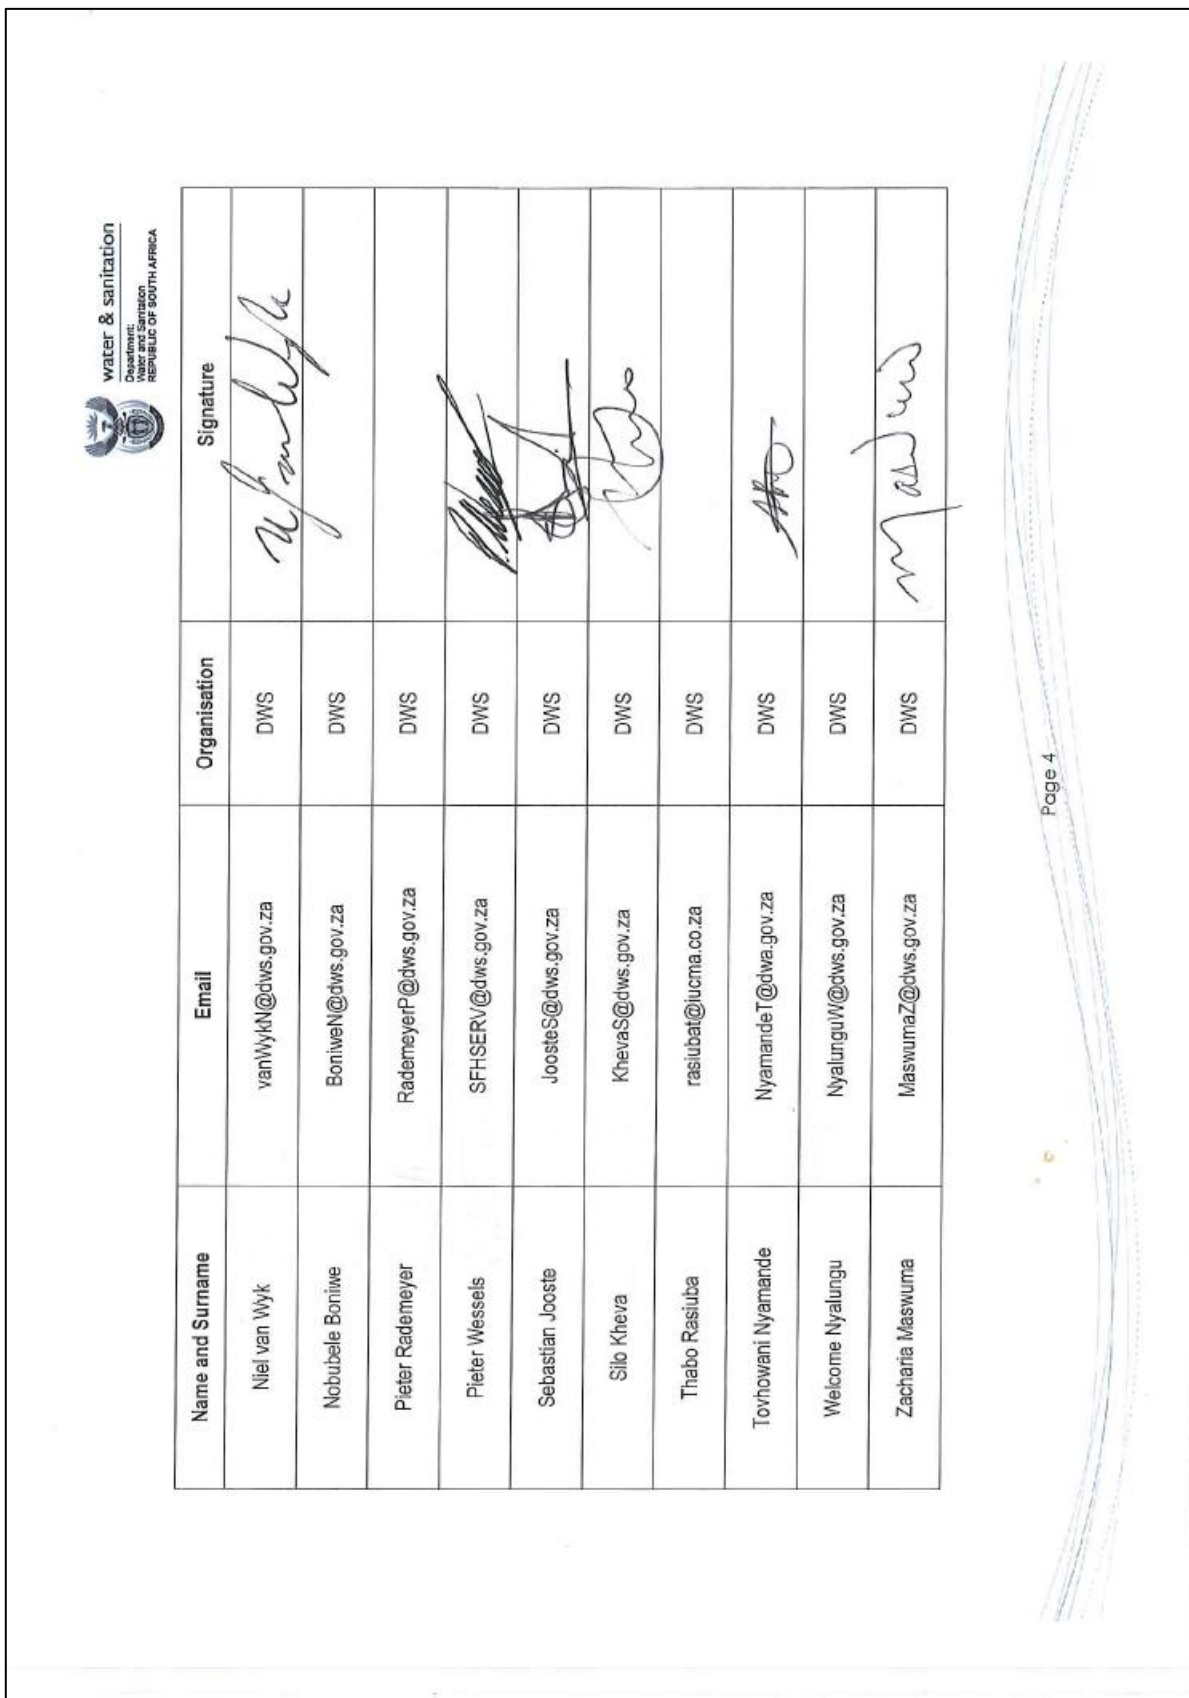 water & sanitation
Department:
Water and Sanitation
REPUBLIC OF SOUTH AFRICA
Name and Surname Email Organisation Signature
Niel van Wyk vanWykN@dws.gov.za DWS
Nobubele Boniwe BoniweN@dws.gov.za DWS
Pieter Rademeyer RademeyerP@dws.gov.za DWS
Pieter Wessels SFHSERV@dws.gov.za DWS
Sebastian Jooste JoosteS@dws.gov.za DWS
Silo Kheva KhevaS@dws.gov.za DWS
Thabo Rasiuba rasiubat@iucma.co.za DWS
Tovhowani Nyamande NyamandeT@dwa.gov.za DWS
Welcome Nyalungu NyalunguW@dws.gov.za DWS
Zacharia Maswuma MaswumaZ@dws.gov.za DWS
Page 4